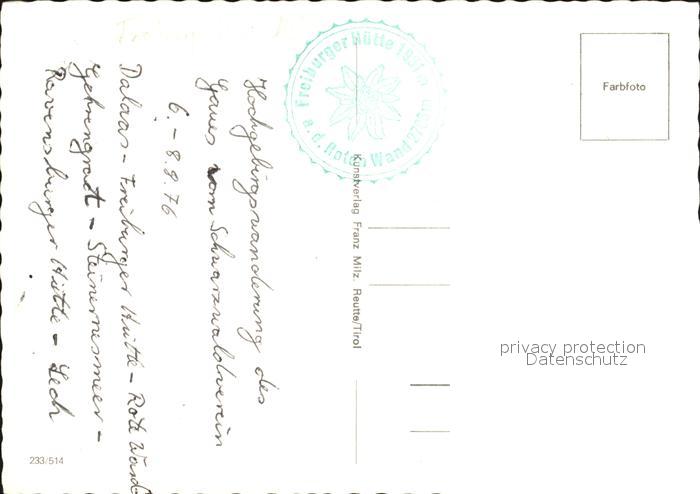 Freiburger Hütte 1931 m
a. d. Roten Wand 2706 m
Farbfoto
Hochgebirgswanderung des
Gaues vom Schwarzwaldverein
6. - 8.8.76
Dalaas - Freiburger Hütte - Rote Wand
Gehrengrat - Steinernesmeer -
Ravensburger Hütte - Lech
Kunstverlag Franz Milz, Reutte/Tirol
privacy protection
Datenschutz
233/514